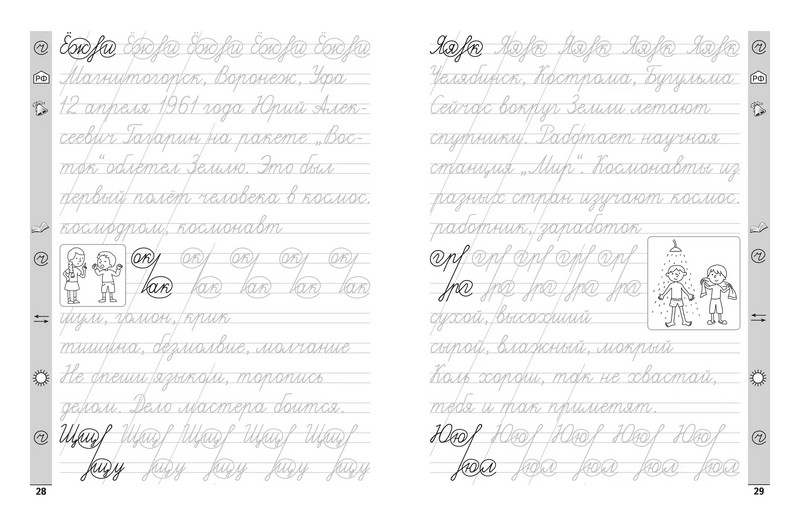 РФ
Магнитогорск, Воронеж, Уфа
12 апреля 1961 года Юрий Алек-
сеевич Гагарин на ракете „Вос-
ток“ облетел Землю. Это был
первый полёт человека в космос.
космодром, космонавт
ок ок ок ок ок
ак ак ак ак ак
шум, гомон, крик
тишина, безмолвие, молчание
Не спеши языком, торопись
делом. Дело мастера боится.
28
Челябинск, Кострома, Бугульма
Сейчас вокруг Земли летают
спутники. Работает научная
станция „Мир“. Космонавты из
разных стран изучают космос.
работник, заработок
сухой, высохший
сырой, влажный, мокрый
Коль хорош, так не хвастай,
тебя и так приметят.
юл юл юл юл юл
РФ
29